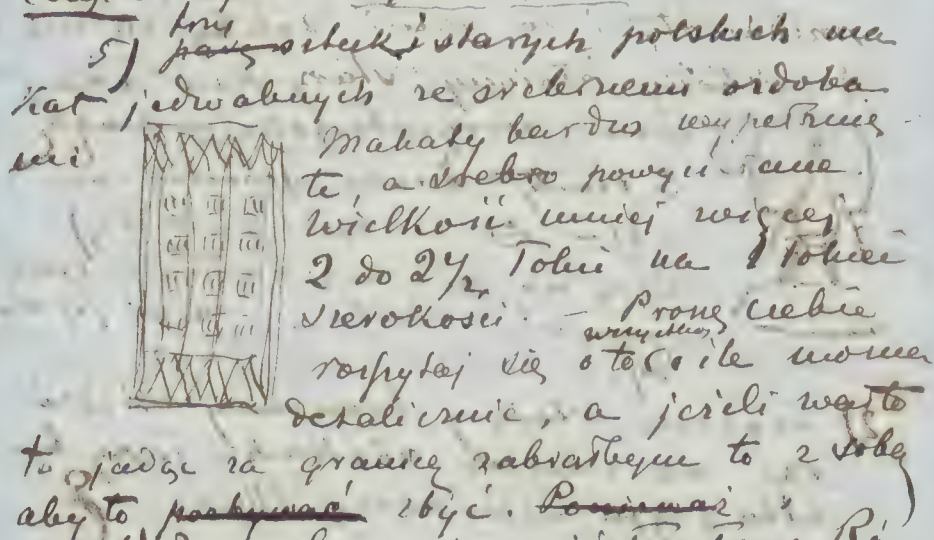 trzy
5) parę sztuk starych polskich ma
kat jedwabnych ze srebrnemi ozdoba
mi Makaty bardzo
te, a srebro
Wielkość mniej więcej
2 do 2 1/2 łokci na 1 łokieć
szerokości. — Proszę ciebie
wszystko
rozpytaj się o to o ile można
detalicznie, a jeżeli warto
to jadąc za granicę zabrałbym to z sobą
aby to zbyć. Ponieważ